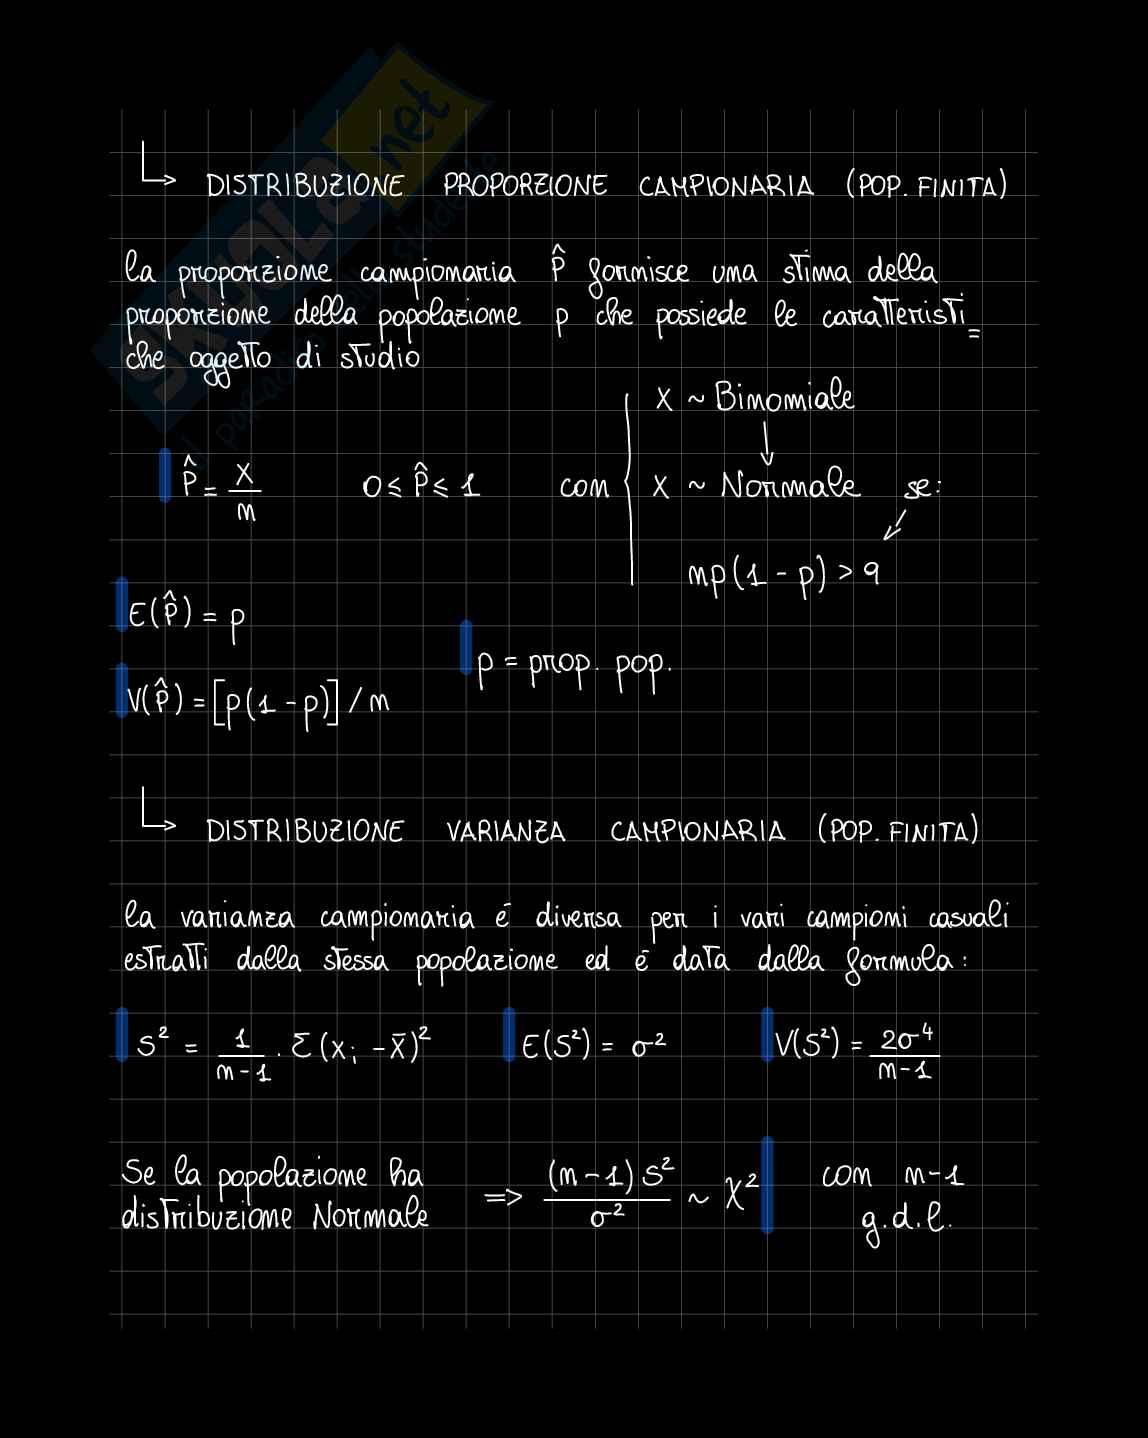 SKUOLA.net
il paradiso dello studente
DISTRIBUZIONE PROPORZIONE CAMPIONARIA (POP. FINITA)
la proporzione campionaria P̂ fornisce una stima della
proporzione della popolazione p che possiede le caratteristi=
che oggetto di studio
X ~ Binomiale
P̂ = X/n 0 ≤ P̂ ≤ 1 con { X ~ Normale se:
np(1 - p) > 9
E(P̂) = p
p = prop. pop.
V(P̂) = [p(1 - p)] / n
DISTRIBUZIONE VARIANZA CAMPIONARIA (POP. FINITA)
la varianza campionaria è diversa per i vari campioni casuali
estratti dalla stessa popolazione ed è data dalla formula:
S² = 1/(n-1) · Σ(xᵢ - x̄)² E(S²) = σ² V(S²) = 2σ⁴/(n-1)
Se la popolazione ha
distribuzione Normale => (n-1)S²/σ² ~ χ² con n-1
g.d.l.